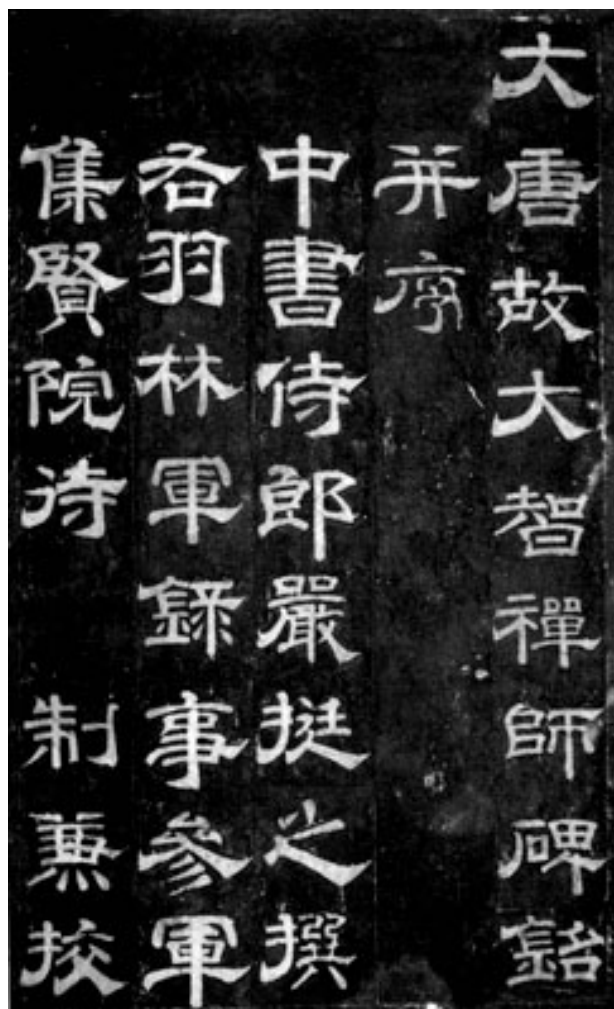 大唐故大智禪師碑銘
并序
中書侍郎嚴挺之撰
右羽林軍錄事參軍
集賢院待 制兼校